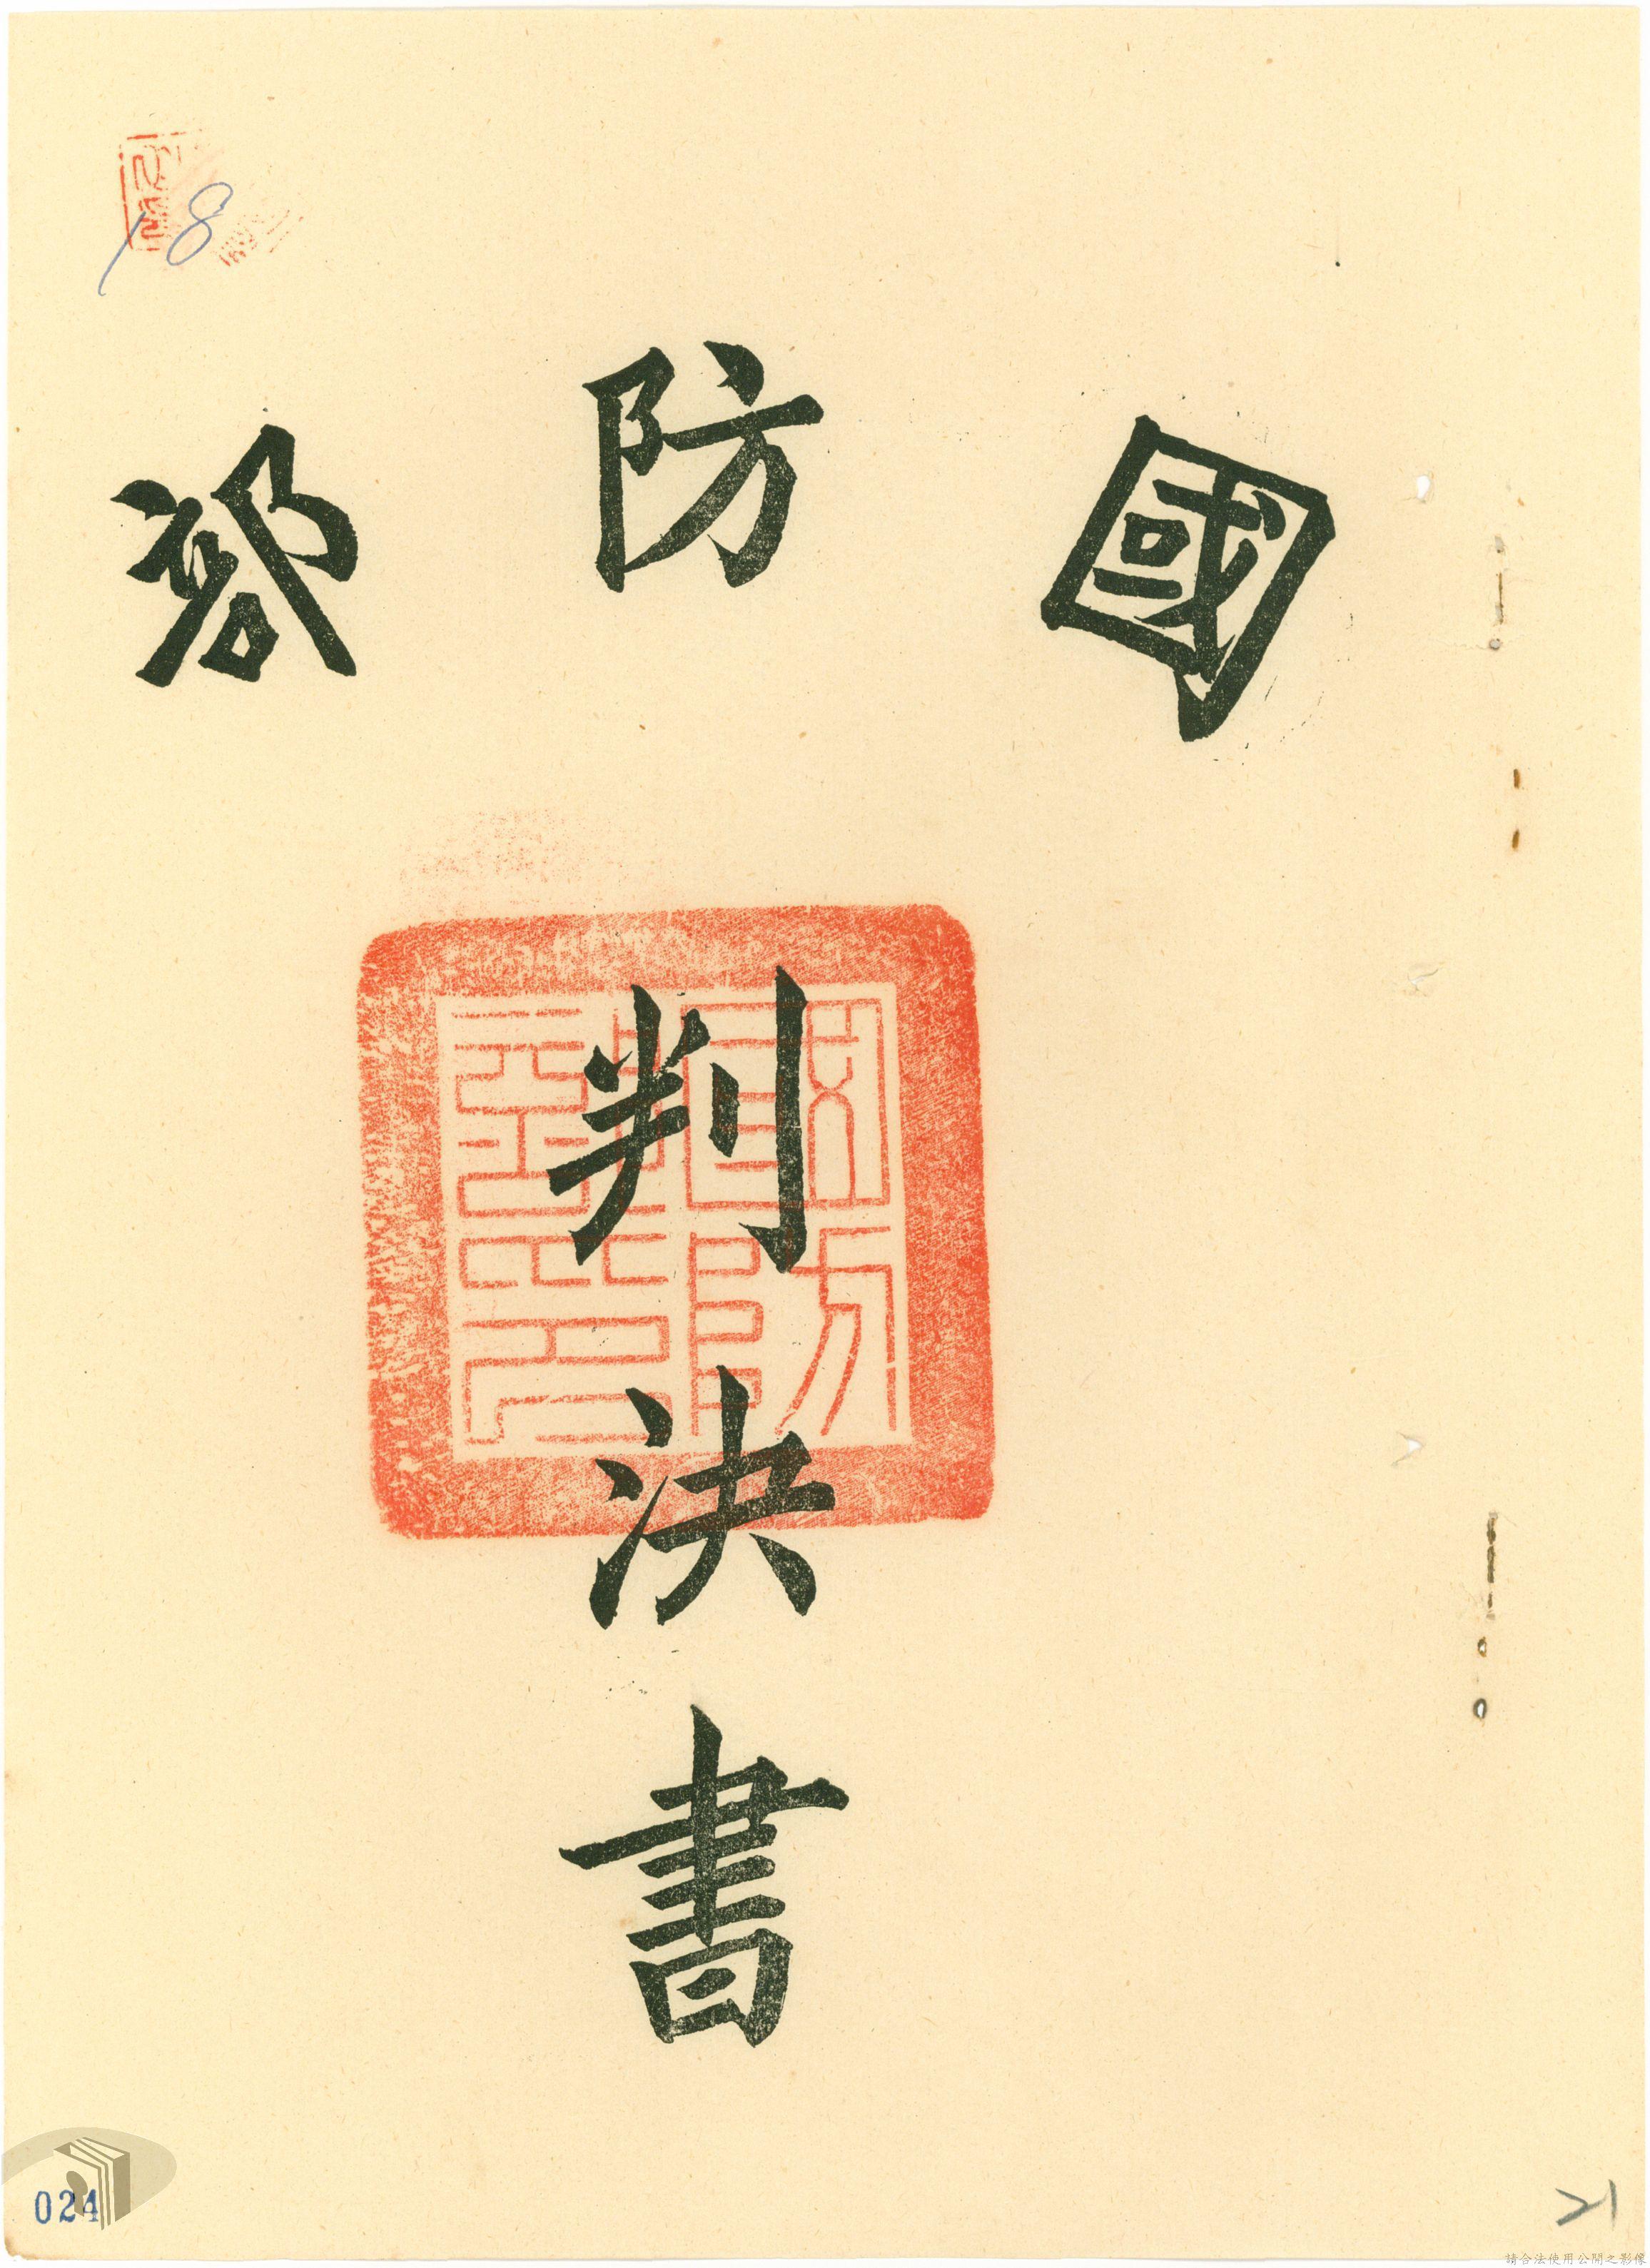 18
國防部
判決書
024
21
請合法使用公開之影像